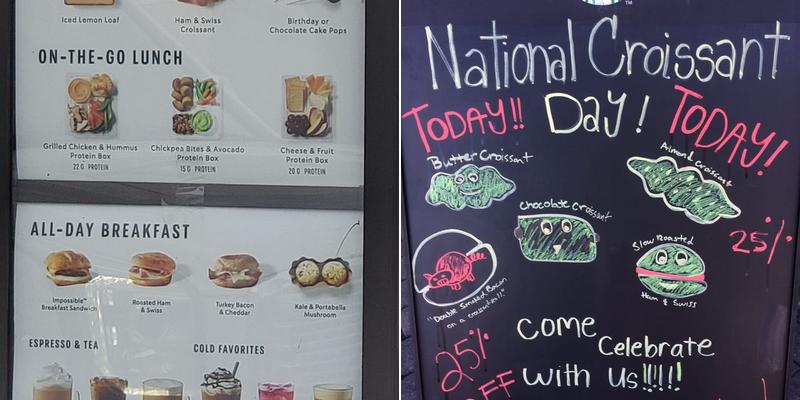 Iced Lemon Loaf
Ham & Swiss
Croissant
Birthday or
Chocolate Cake Pops
ON-THE-GO LUNCH
Grilled Chicken & Hummus
Protein Box
22 G PROTEIN
Chickpea Bites & Avocado
Protein Box
15 G PROTEIN
Cheese & Fruit
Protein Box
20 G PROTEIN
ALL-DAY BREAKFAST
Impossible™
Breakfast Sandwich
Roasted Ham
& Swiss
Turkey Bacon
& Cheddar
Kale & Portabella
Mushroom
ESPRESSO & TEA
COLD FAVORITES
TM
National Croissant
TODAY!! Day! TODAY!
Butter Croissant
Almond Croissant
Chocolate Croissant
25%
Slow Roasted
Ham & Swiss
"Double Smoked Bacon
on a croissant!!"
25%
OFF
Come
Celebrate
with us!!!!!